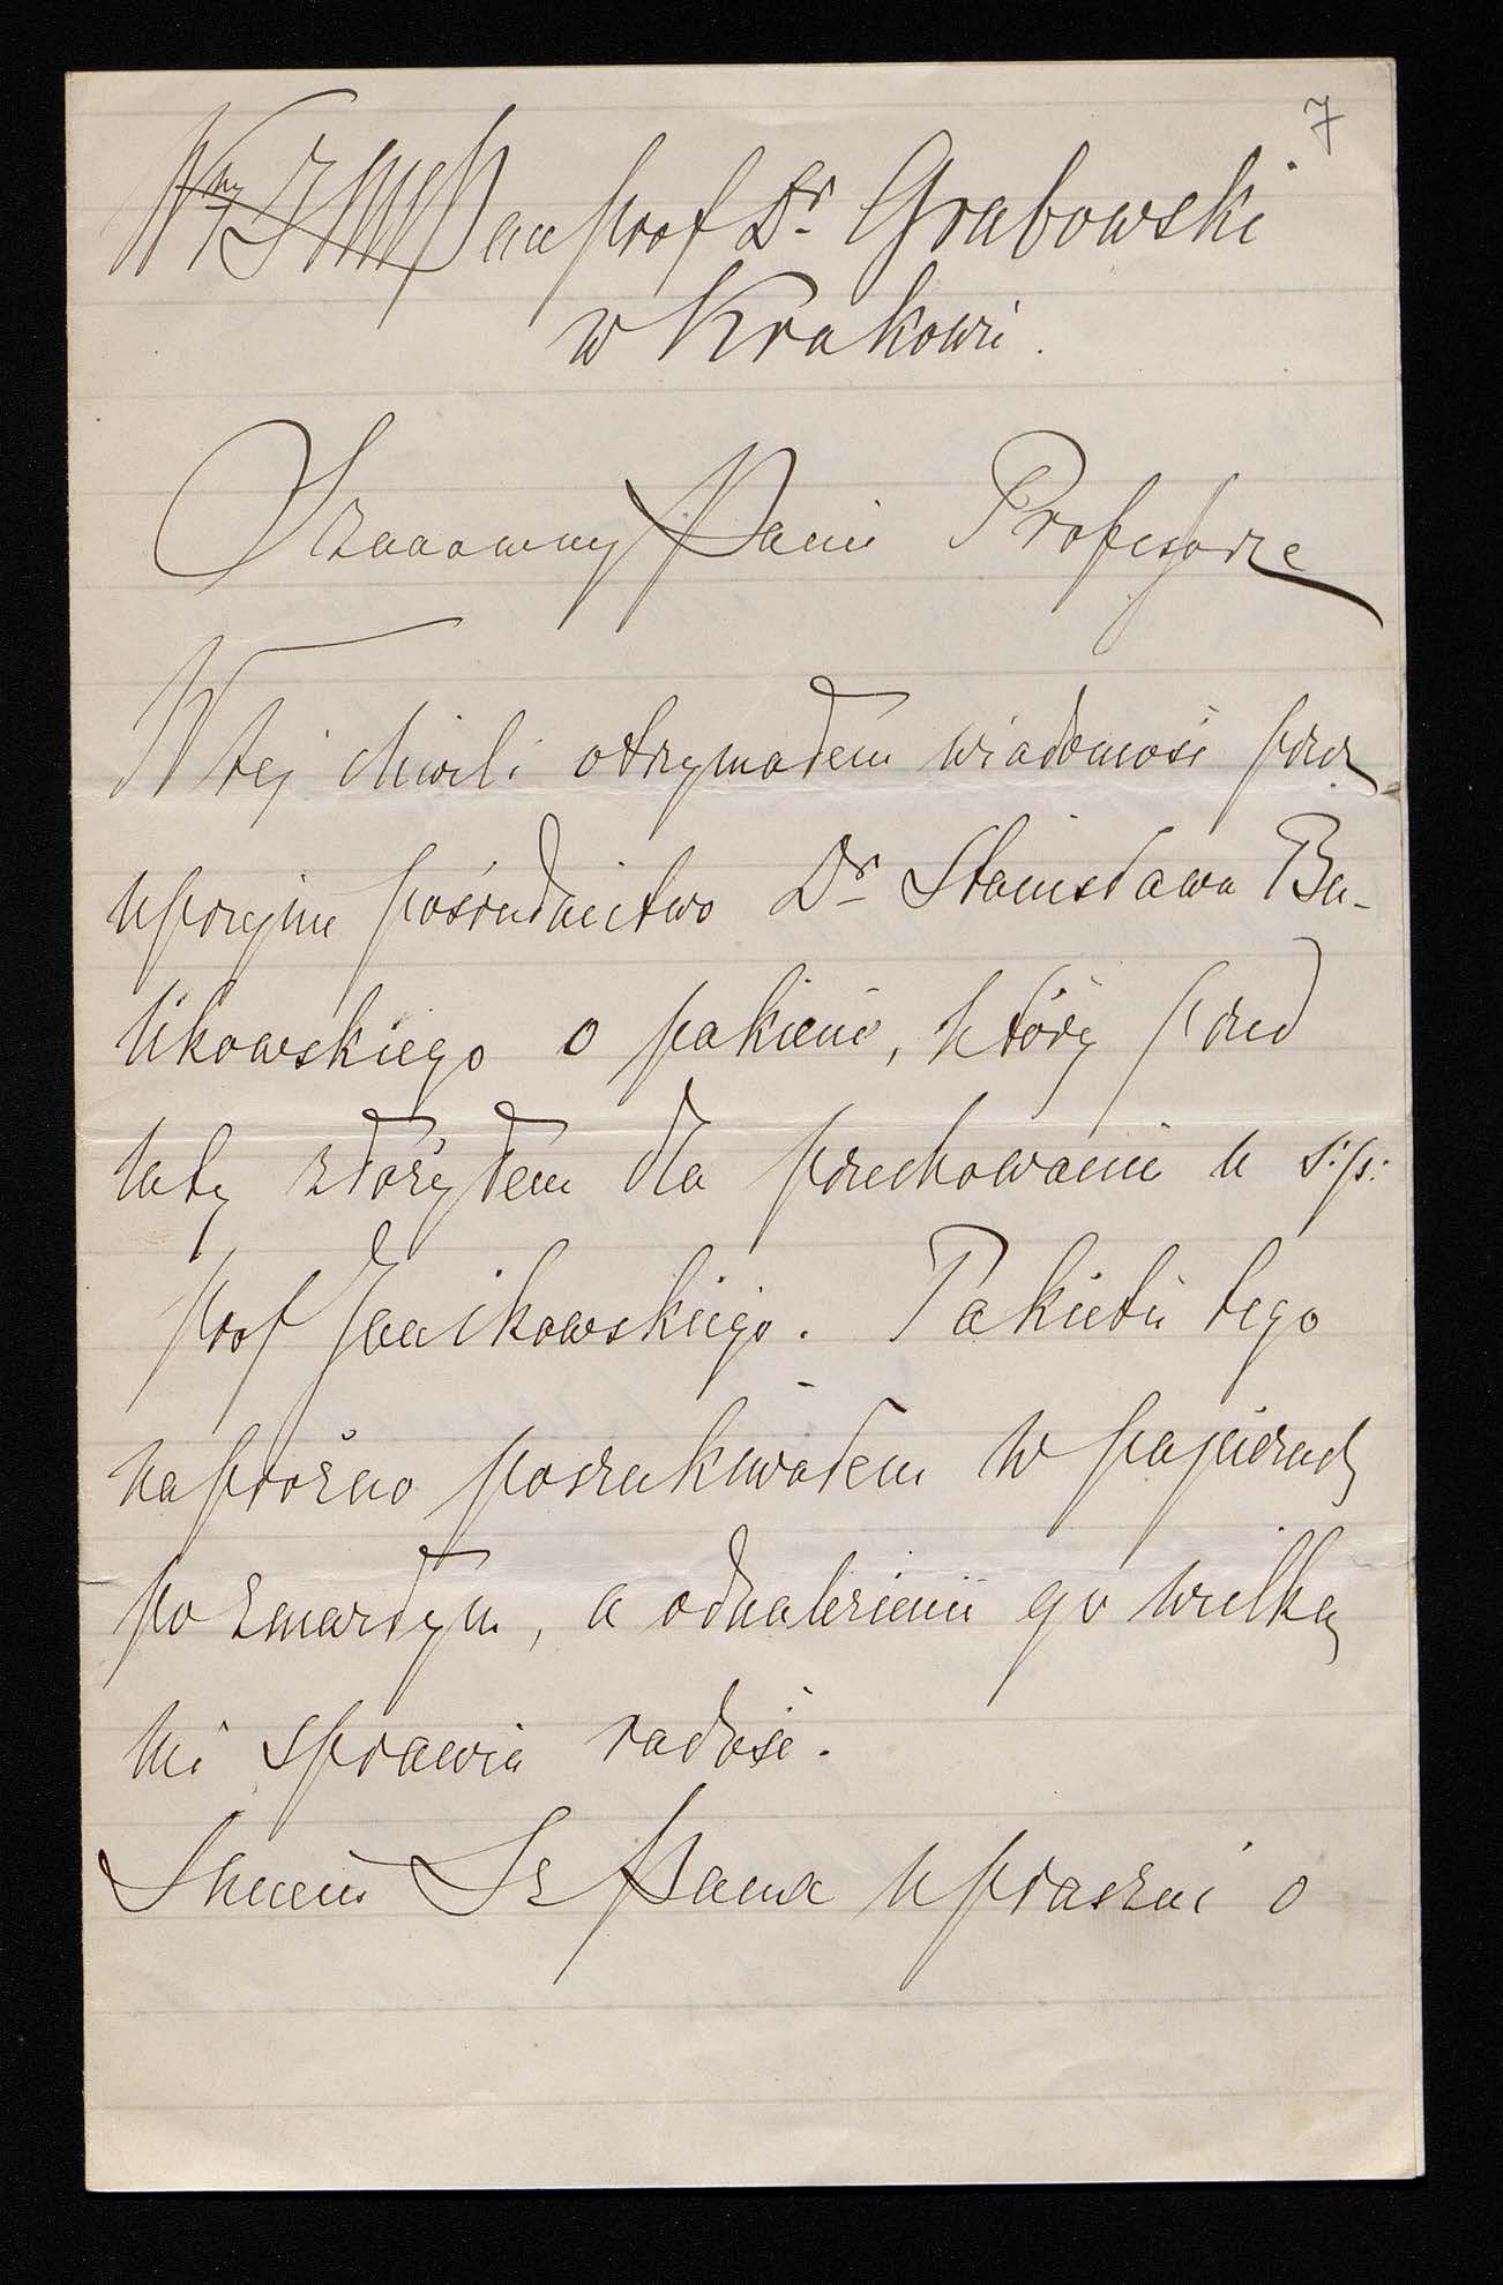 7
Pan Prof Dr Grabowski
w Krakowie.
Szanowny Panie Profesorze
W tej chwili otrzymałem wiadomość przez
uprzejme pośrednictwo Dr Stanisława Bu-
likowskiego o pakiecie, który przed
laty złożyłem dla przechowania u ś:p:
prof Janikowskiego. Pakietu tego
napróżno poszukiwałem w papierach
po zmarłym, a odnalezienie go wielką
mi sprawia radość.
Sz Pana upraszać o